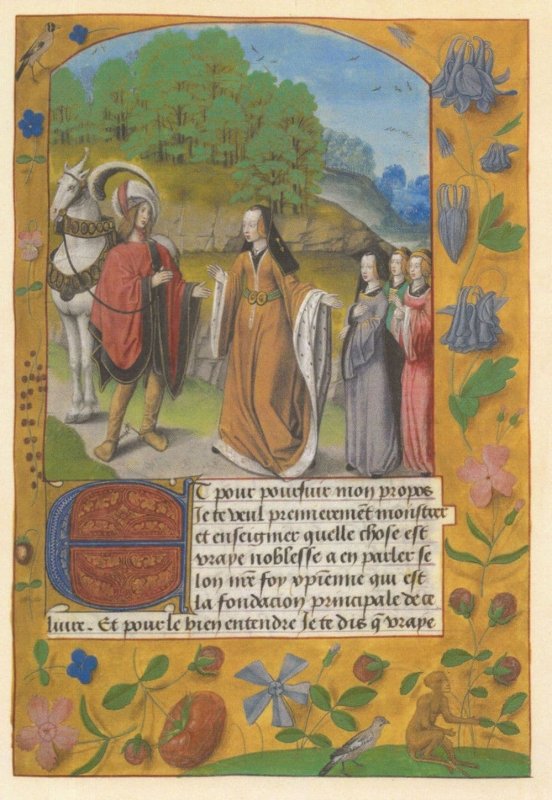 Et pour poursuir mon propos
Je te veul premieremẽt monstrer
et enseigner quelle chose est
vraye noblesse a en parler se
lon nr̃e foy xp̃ienne qui est
la fondacion principale de ce
livre. Et pour le bien entendre Je te dis q̃ vraye